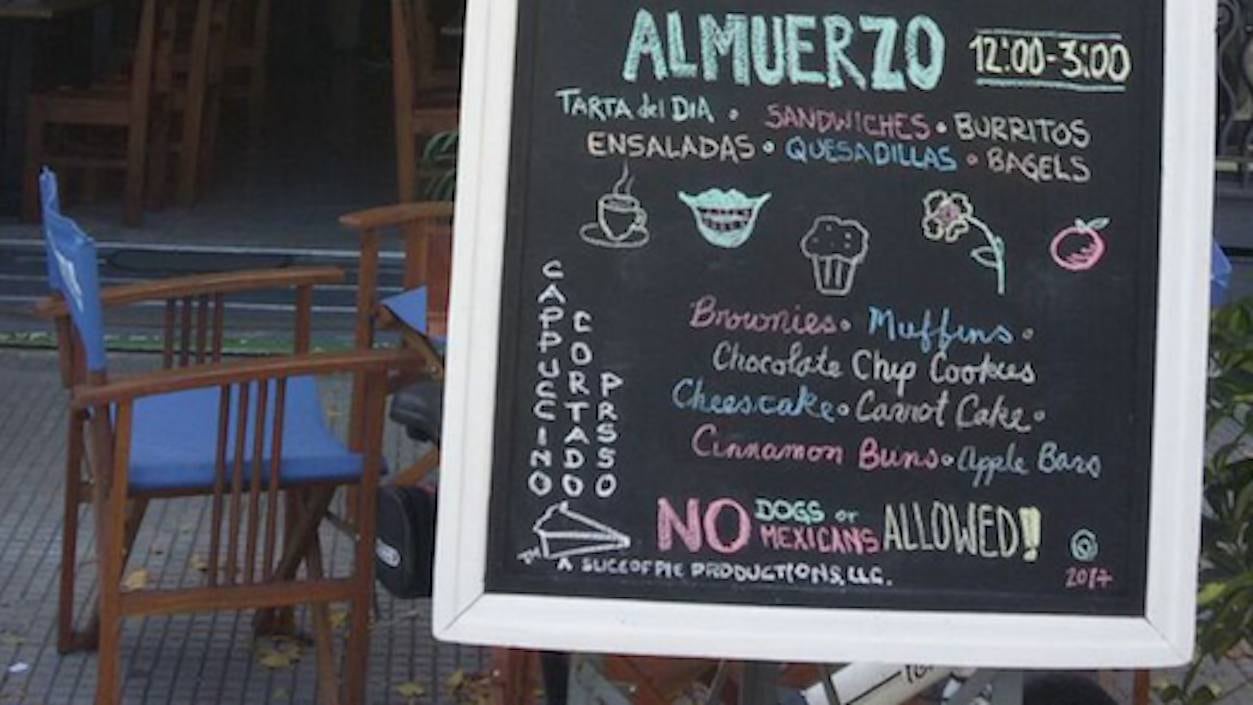 ALMUERZO 12:00-3:00
TARTA del DIA • SANDWICHES • BURRITOS
ENSALADAS • QUESADILLAS • BAGELS
CAPPUCCINO
CORTADO
PRSSO
Brownies • Muffins •
Chocolate Chip Cookies
Cheescake • Carrot Cake •
Cinnamon Buns • Apple Bars
NO DOGS or MEXICANS ALLOWED!
TM A SLICE OF PIE PRODUCTIONS, LLC.
2017